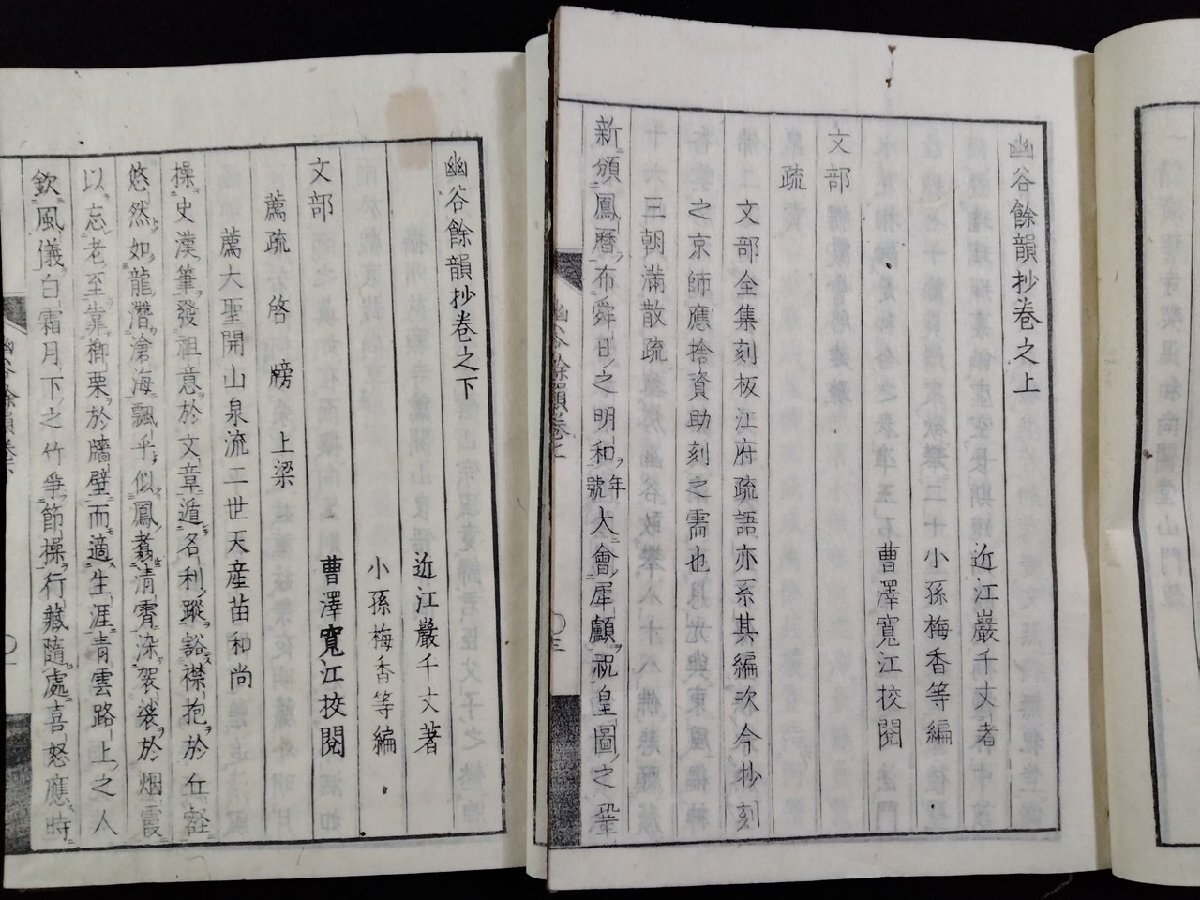 幽谷餘韻抄卷之上
近江嚴千丈著
小孫梅香等編
曹澤寬江校閲
文部
疏
文部全集刻板江府疏語亦系其編次今抄刻
之京師應捨資助刻之需也
三朝滿散疏
新頒鳳曆布舜日之明和年號大會犀顱祝皇圖之鞏
幽谷餘韻抄卷之下
近江嚴千丈著
小孫梅香等編
曹澤寬江校閲
文部
薦疏 啓 牓 上梁
薦大聖開山泉流二世天産苗和尚
操史漢筆發祖意於文章遁名利蹤豁襟抱於丘壑
悠然如龍潛滄海飄乎似鳳翥清霄深袈裟於烟霞
以忘老至靠榔栗於牆壁而適生涯青雲路上之人
欽風儀白霜月下之竹爭節操行藏隨處喜怒應時